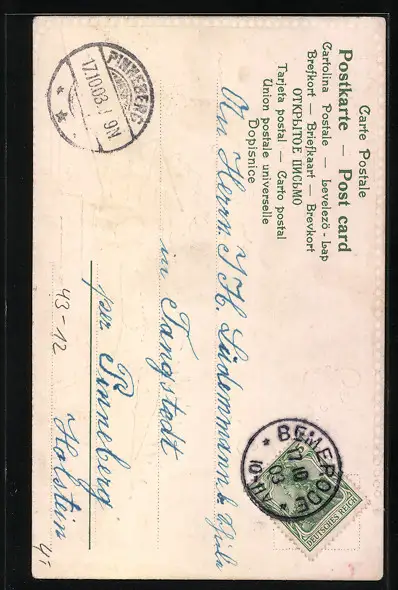 Carte Postale
Postkarte — Post card
Cartolina Postale — Levelező-Lap
Brefkort — Briefkaart — Brevkort
ОТКРЫТОЕ ПИСЬМО
Tarjeta postal — Carto postal
Union postale universelle
Dopisnice
PINNEBERG
17.10.03. 7-9N
BEMERODE
10
03
DEUTSCHES REICH
An Herrn J. H. Lüdemann
in Tangstedt
per Pinneberg
Holstein
43-12